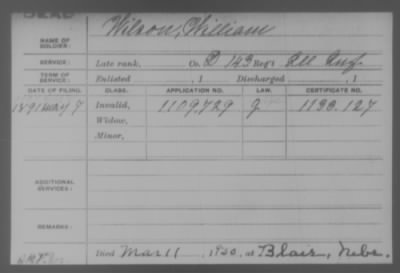 DEAD
NAME OF SOLDIER: Wilson, William
SERVICE: Late rank, Co. D 143 Reg't Ill Inf.
TERM OF SERVICE: Enlisted , 1 Discharged , 1
DATE OF FILING. CLASS. APPLICATION NO. LAW. CERTIFICATE NO.
1891 May 7 Invalid, 1109.729 1133.127
Widow,
Minor,
ADDITIONAL SERVICES:
REMARKS:
Died Mar 11, 1920, at Blair, Nebr.